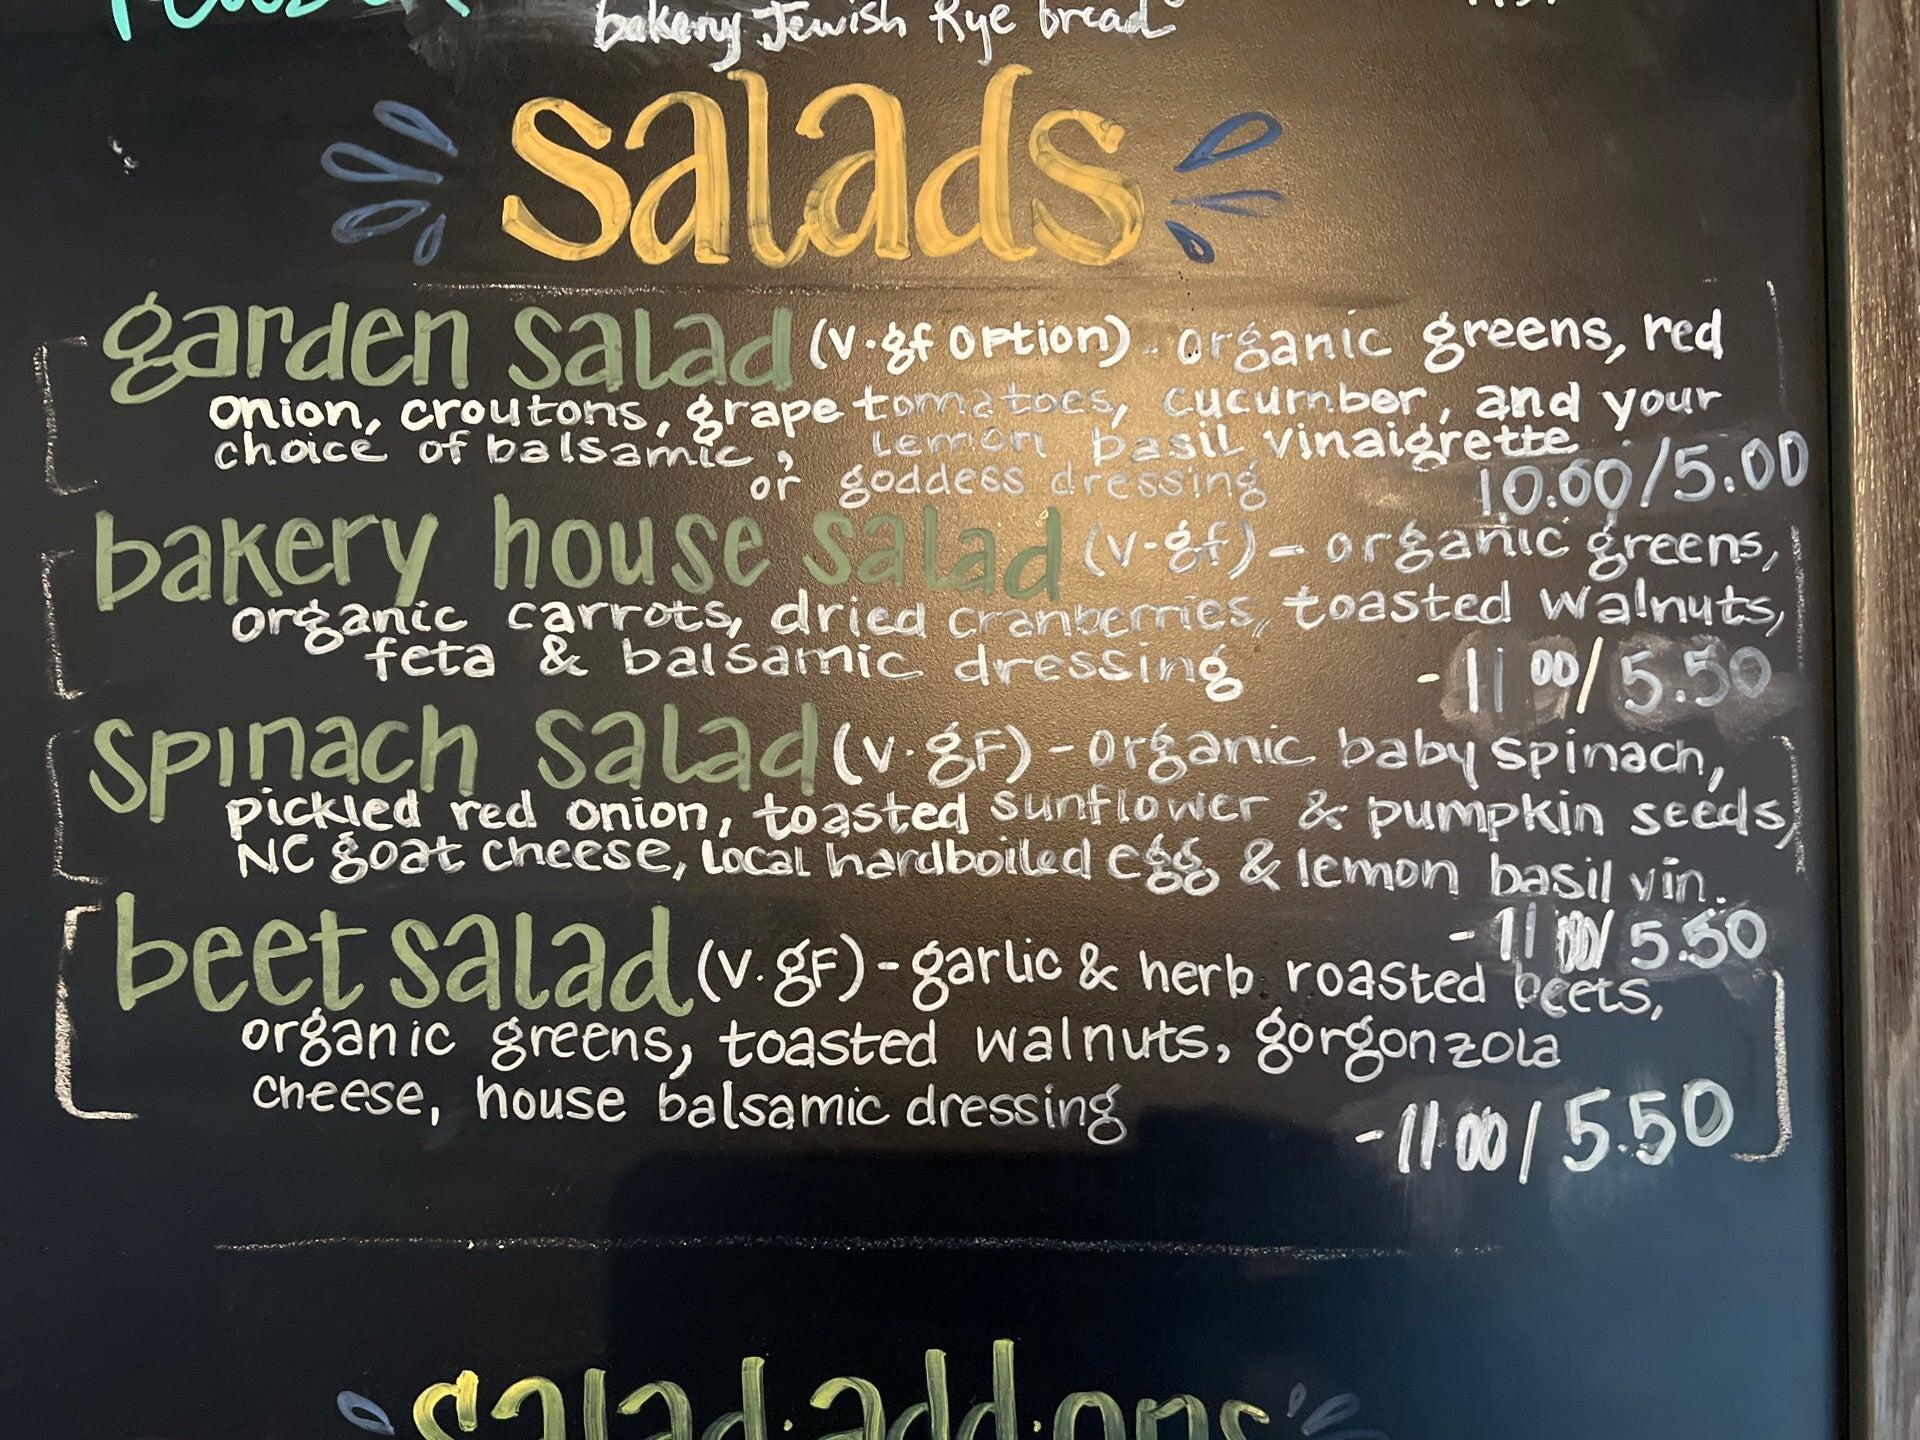 bakery Jewish Rye bread
salads
garden salad (v·gf option) - organic greens, red
onion, croutons, grape tomatoes, cucumber, and your
choice of balsamic, lemon basil vinaigrette
or goddess dressing 10.00/5.00
bakery house salad (v·gf) - organic greens,
organic carrots, dried cranberries, toasted walnuts,
feta & balsamic dressing - 11 00/5.50
spinach salad (v·gF) - organic baby spinach,
pickled red onion, toasted sunflower & pumpkin seeds,
NC goat cheese, local hardboiled egg & lemon basil vin.
- 11 00/5.50
beet salad (v.gF) - garlic & herb roasted beets,
organic greens, toasted walnuts, gorgonzola
cheese, house balsamic dressing - 11 00/5.50
salad·add·ons